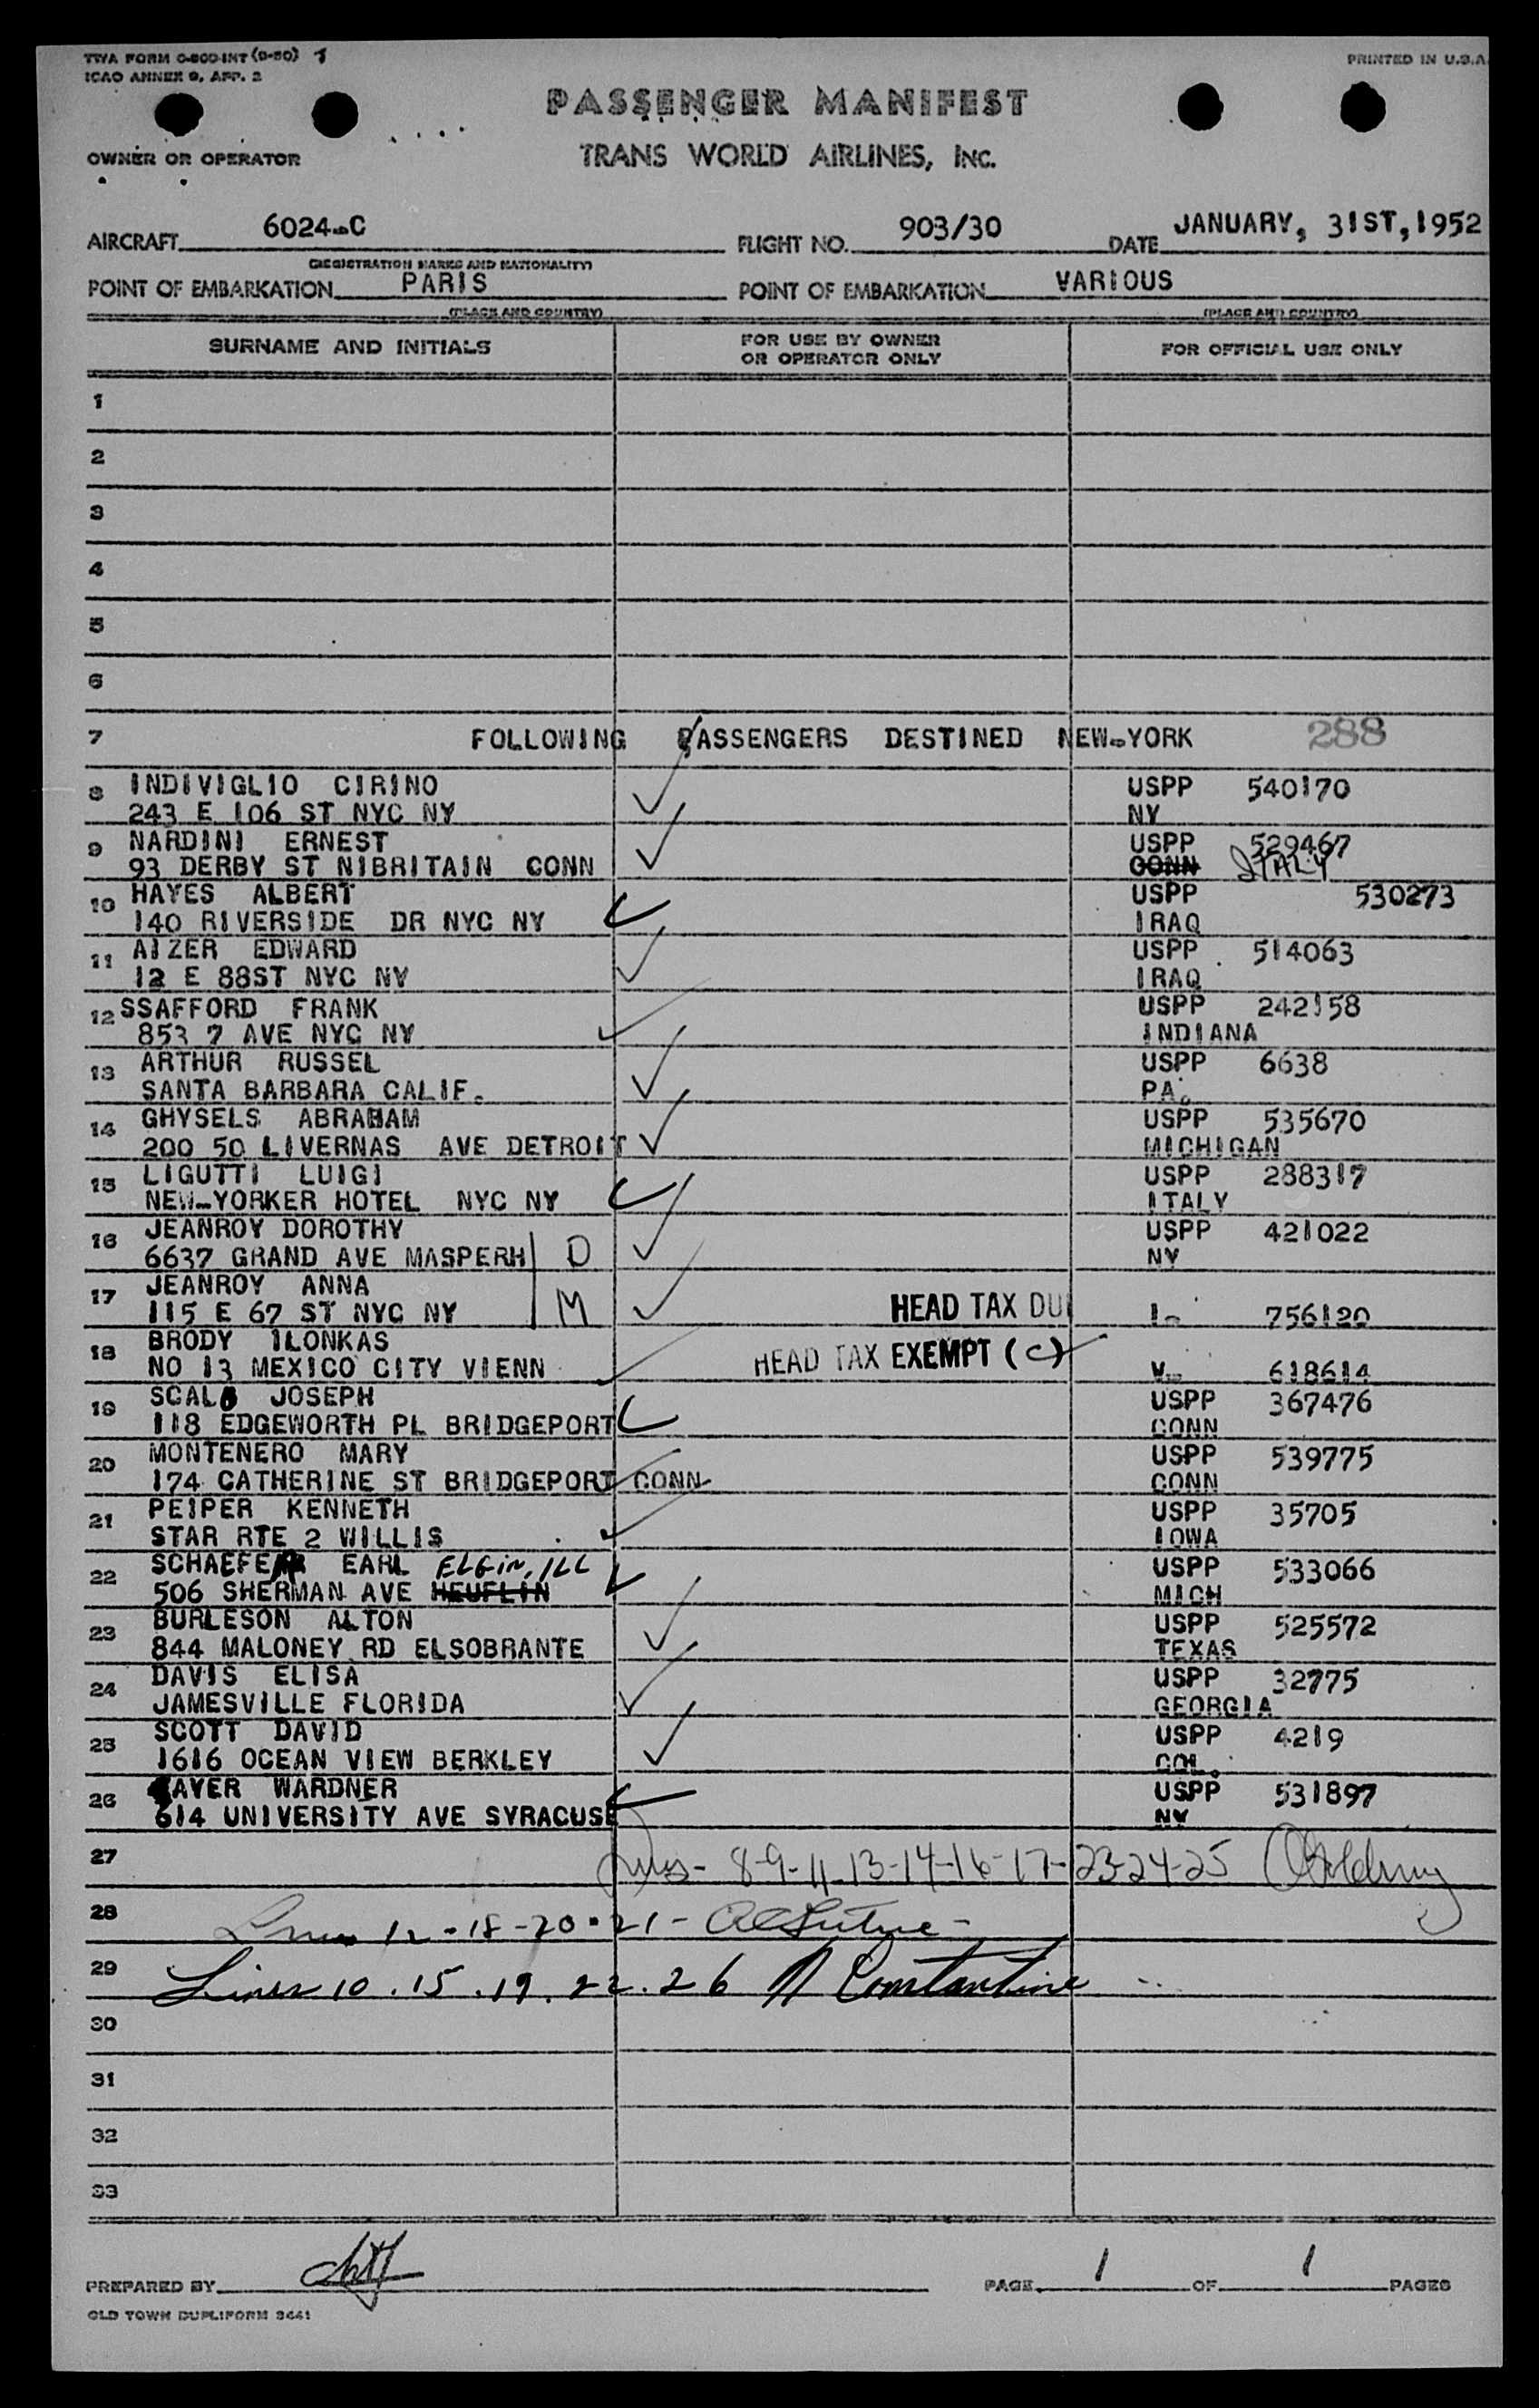 TWA FORM O-800-INT (9-50)
ICAO ANNEX 9, APP. 2
PRINTED IN U.S.A.
PASSENGER MANIFEST
OWNER OR OPERATOR
TRANS WORLD AIRLINES, INC.
AIRCRAFT 6024-C FLIGHT NO. 903/30 DATE JANUARY, 31ST, 1952
(REGISTRATION MARKS AND NATIONALITY)
POINT OF EMBARKATION PARIS POINT OF EMBARKATION VARIOUS
(PLACE AND COUNTRY) (PLACE AND COUNTRY)
SURNAME AND INITIALS FOR USE BY OWNER OR OPERATOR ONLY FOR OFFICIAL USE ONLY
1
2
3
4
5
6
7 FOLLOWING PASSENGERS DESTINED NEW-YORK 288
8 INDIVIGLIO CIRINO USPP 540170
243 E 106 ST NYC NY NY
9 NARDINI ERNEST USPP 529467
93 DERBY ST NIBRITAIN CONN CONN ITALY
10 HAYES ALBERT USPP 530273
140 RIVERSIDE DR NYC NY IRAQ
11 AIZER EDWARD USPP 514063
12 E 88ST NYC NY IRAQ
12 SSAFFORD FRANK USPP 242158
853 7 AVE NYC NY INDIANA
13 ARTHUR RUSSEL USPP 6638
SANTA BARBARA CALIF. PA.
14 GHYSELS ABRAHAM USPP 535670
200 50 LIVERNAS AVE DETROIT MICHIGAN
15 LIGUTTI LUIGI USPP 288317
NEW-YORKER HOTEL NYC NY ITALY
16 JEANROY DOROTHY USPP 421022
6637 GRAND AVE MASPERH D NY
17 JEANROY ANNA
115 E 67 ST NYC NY M HEAD TAX DU I- 756120
18 BRODY ILONKAS
NO 13 MEXICO CITY VIENN HEAD TAX EXEMPT (C) V- 618614
19 SCALO JOSEPH USPP 367476
118 EDGEWORTH PL BRIDGEPORT CONN
20 MONTENERO MARY USPP 539775
174 CATHERINE ST BRIDGEPORT CONN CONN
21 PEIPER KENNETH USPP 35705
STAR RTE 2 WILLIS IOWA
22 SCHAEFER EARL ELGIN, ILL USPP 533066
506 SHERMAN AVE HEUFLIN MICH
23 BURLESON ALTON USPP 525572
844 MALONEY RD ELSOBRANTE TEXAS
24 DAVIS ELISA USPP 32775
JAMESVILLE FLORIDA GEORGIA
25 SCOTT DAVID USPP 4219
1616 OCEAN VIEW BERKLEY COL.
26 AYER WARDNER USPP 531897
614 UNIVERSITY AVE SYRACUSE NY
27 8-9-11-13-14-16-17-23-24-25
28 12-18-20-21-
29 Lines 10.15.19.22.26 N Constantine
30
31
32
33
PREPARED BY PAGE 1 OF 1 PAGES
OLD TOWN DUPLIFORM 3441